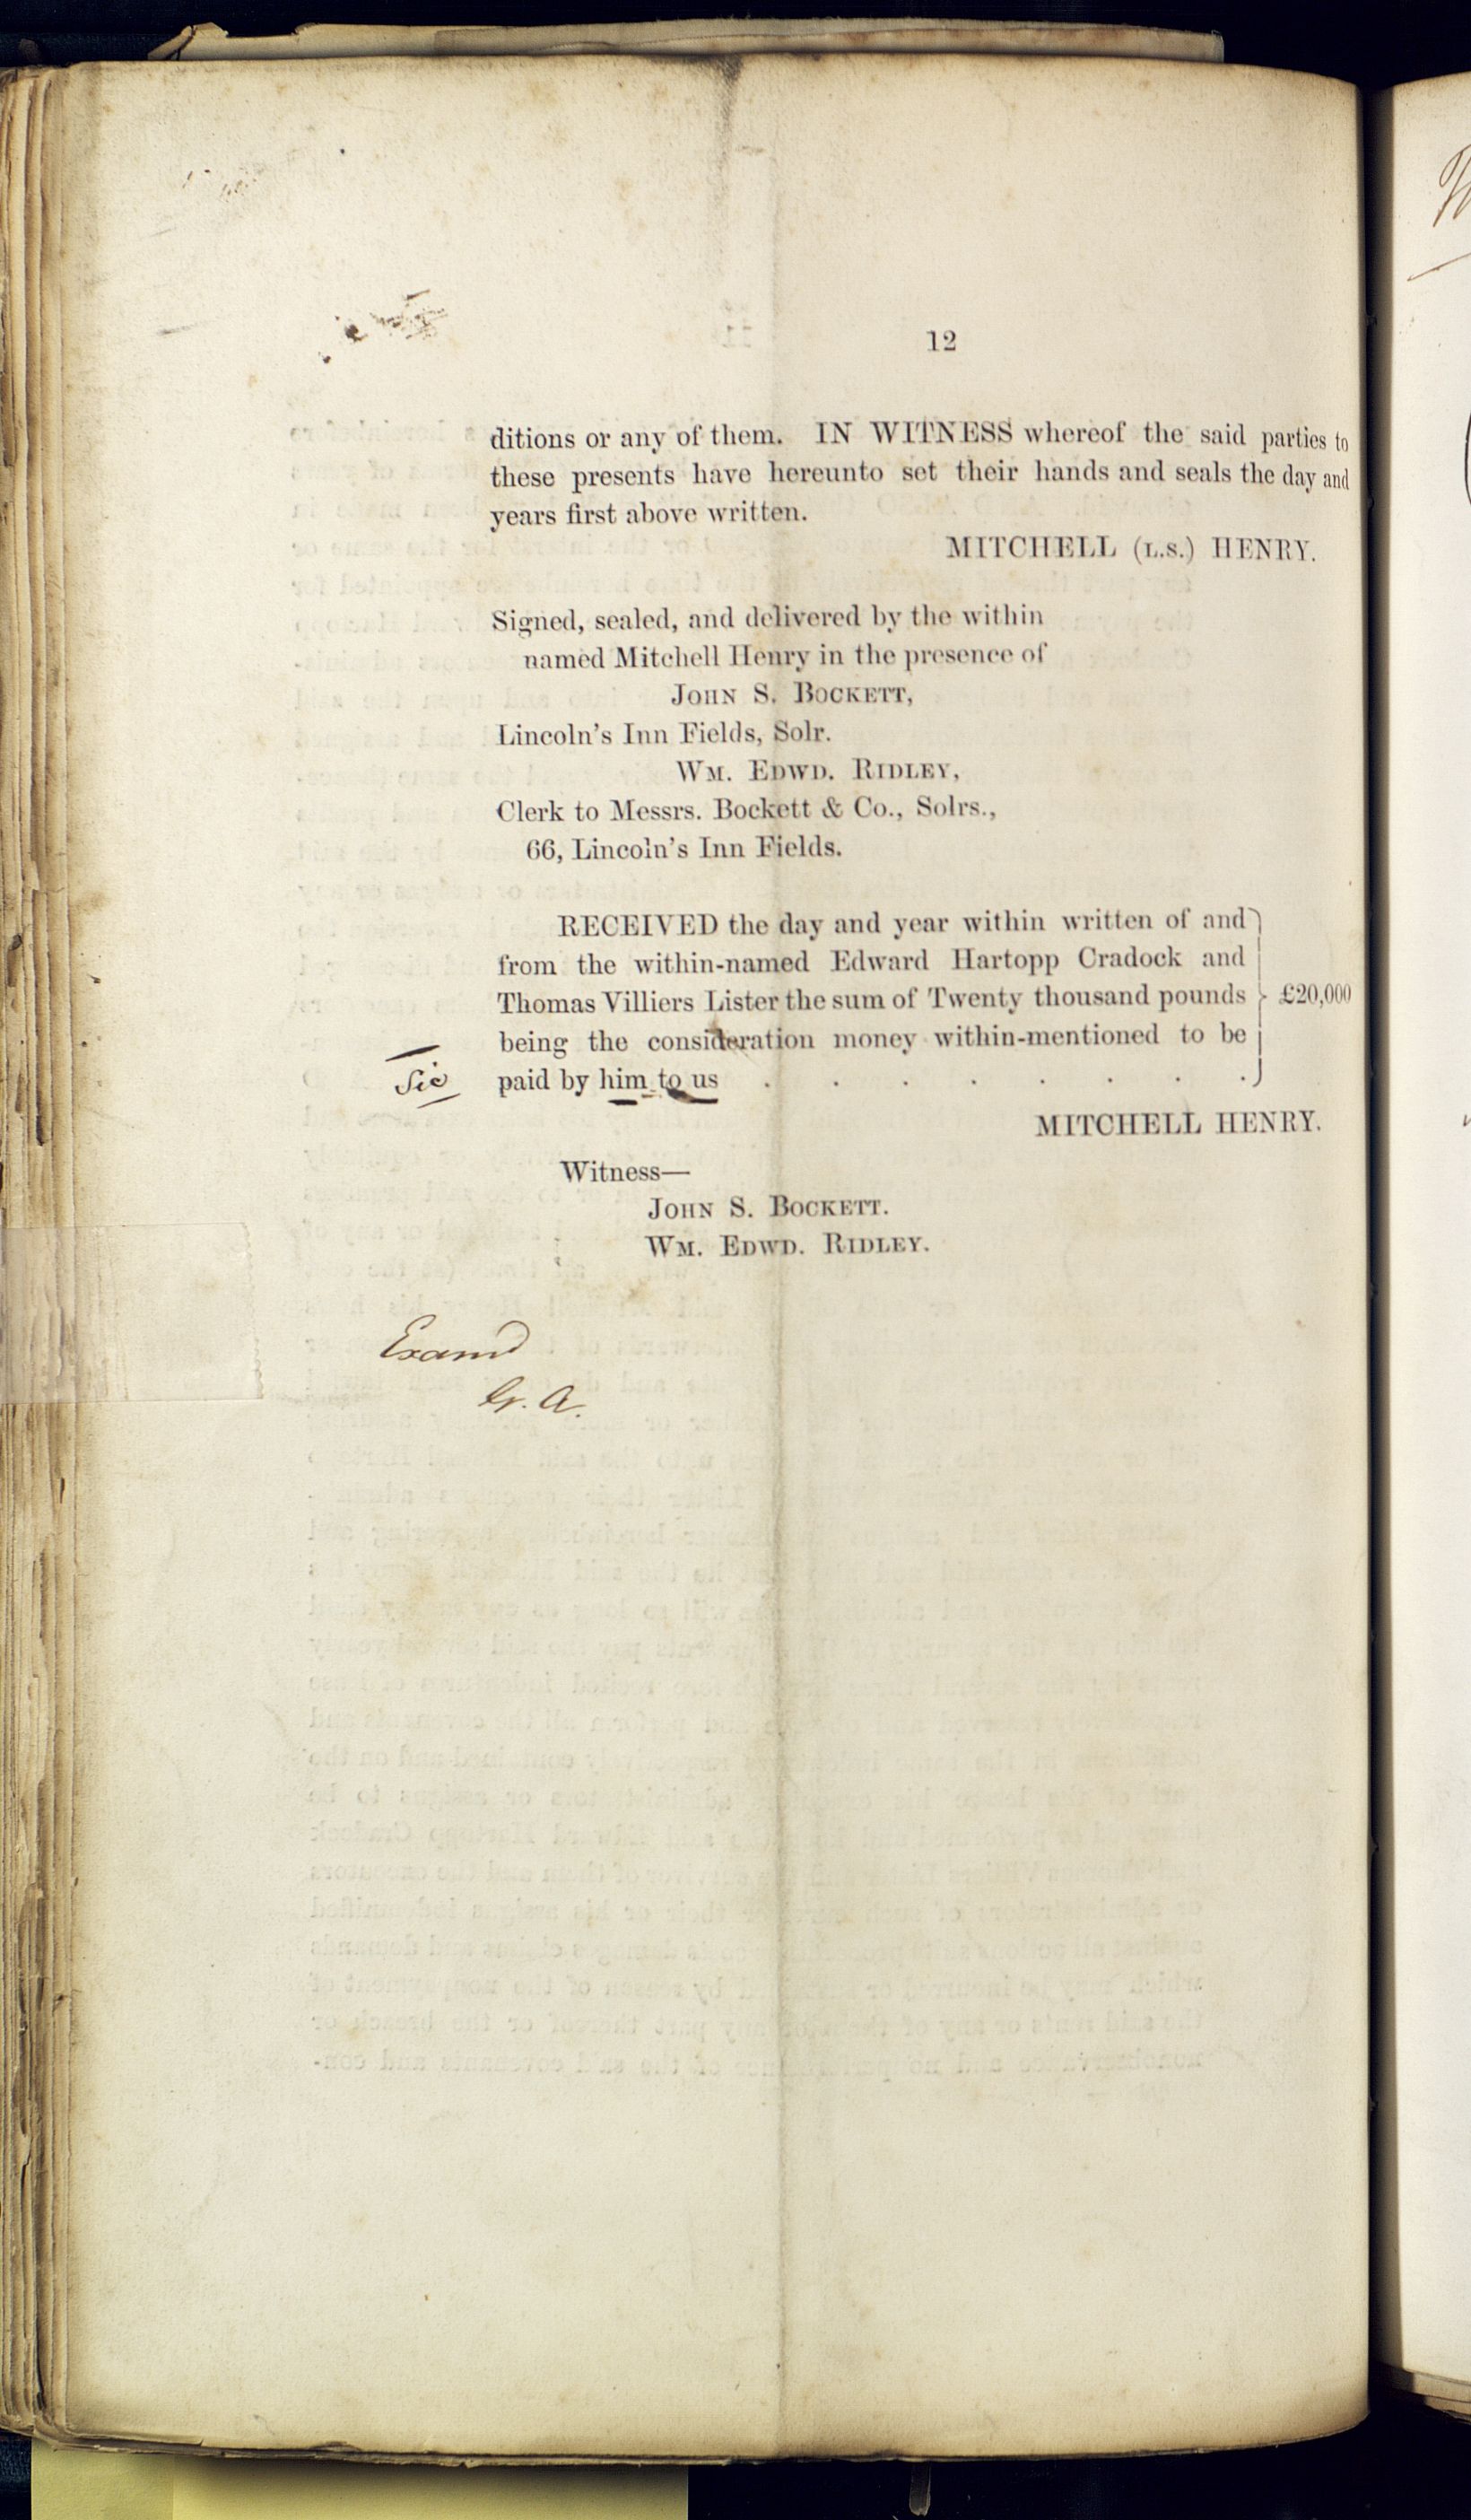 12
ditions or any of them. IN WITNESS whereof the said parties to
these presents have hereunto set their hands and seals the day and
years first above written.
MITCHELL (L.S.) HENRY.
Signed, sealed, and delivered by the within
named Mitchell Henry in the presence of
JOHN S. BOCKETT,
Lincoln's Inn Fields, Solr.
WM. EDWD. RIDLEY,
Clerk to Messrs. Bockett & Co., Solrs.,
66, Lincoln's Inn Fields.
RECEIVED the day and year within written of and
from the within-named Edward Hartopp Cradock and
Thomas Villiers Lister the sum of Twenty thousand pounds £20,000
being the consideration money within-mentioned to be
Sic paid by him to us . . . . . . . .
MITCHELL HENRY.
Witness—
JOHN S. BOCKETT.
WM. EDWD. RIDLEY.
Examd
G. A.